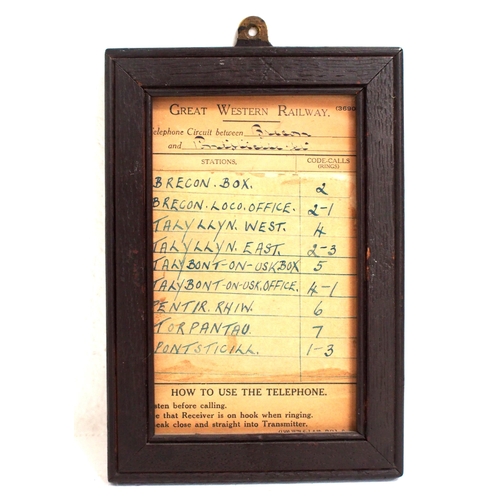 GREAT WESTERN RAILWAY.
elephone Circuit between Brecon
and
STATIONS. CODE-CALLS (RINGS)
BRECON. BOX. 2
BRECON. LOCO. OFFICE. 2-1
TALYLLYN. WEST. 4
TALYLLYN. EAST. 2-3
TALYBONT-ON-USK BOX 5
TALYBONT-ON-USK. OFFICE. 4-1
PENTIR. RHIW. 6
TORPANTAU. 7
PONTSTICILL. 1-3
HOW TO USE THE TELEPHONE.
sten before calling.
e that Receiver is on hook when ringing.
eak close and straight into Transmitter.